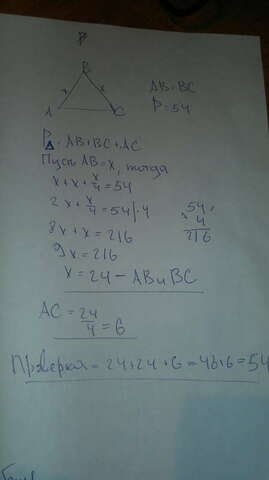 P
B
AB=BC
P=54
A
C
P△=AB+BC+AC
Пусть AB=x, тогда
x+x+x/4=54
2x+x/4=54/·4
8x+x=216
9x=216
x=24-AB и BC
54
4
216
AC=24/4=6
Проверка=24+24+6=48+6=54